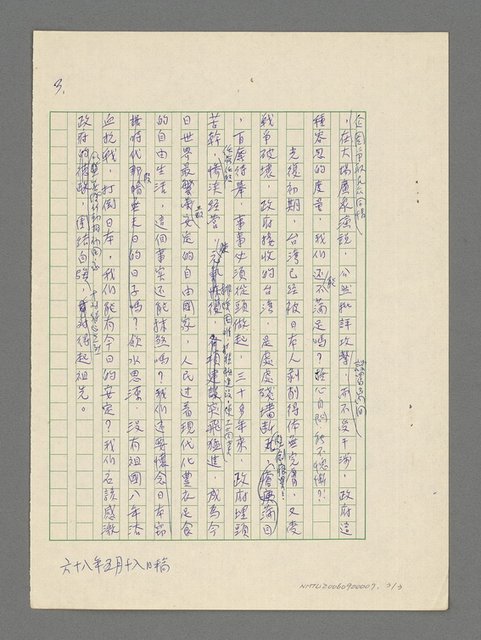 3.
，在大場廣衆演說，公然批評攻擊，而不受干涉，政府這
種容忍的度量，我們還能不滿足嗎？捫心自問能不慚愧?!
光復初期，台灣已經被日本人剝削得体無完膚，又受
戰爭破壞，政府接收的台灣，是處處殘墻斷瓦，瘡痍滿目
，百廢待舉，事事必須從頭做起，三十多年來，政府埋頭
苦幹，慘淡經營，突飛猛進，成為今
日世界最安定的自由國家，人民过着現代化豐衣足食
的自由生活，這個事实还能抹煞嗎？我們还要懷念日本
時代那暗無天日的日子嗎？飲水思源，沒有祖國八年浴
血抗戰，打倒日本，我們能有今日的安定？我們应該感激
政府的德政，團結自強，対得起祖先。
六十八年五月十八日稿
NMTL20060900007, 3/3